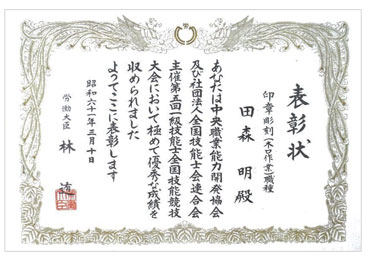 表彰状
印章彫刻(木口作業)職種
田森 明 殿
あなたは中央職業能力開発協会
及び社団法人全国技能士会連合会
主催第五回一級技能士全国技能競技
大会において極めて優秀な成績を
収められました
よってここに表彰します
昭和六十一年三月十日
労働大臣 林 逌